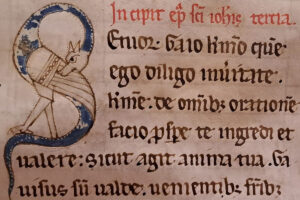 Incipit ep̄. sc̄i ioh̄is tercia.
Senior. Gaio k̄mo quē
ego diligo in ueritate.
k̄me: de omīb; orationē
facio ꝓspe te ingredi et
ualere: sicut agit anima tua. Ga
uisus sū ualde. uenientib; fr̄ib;